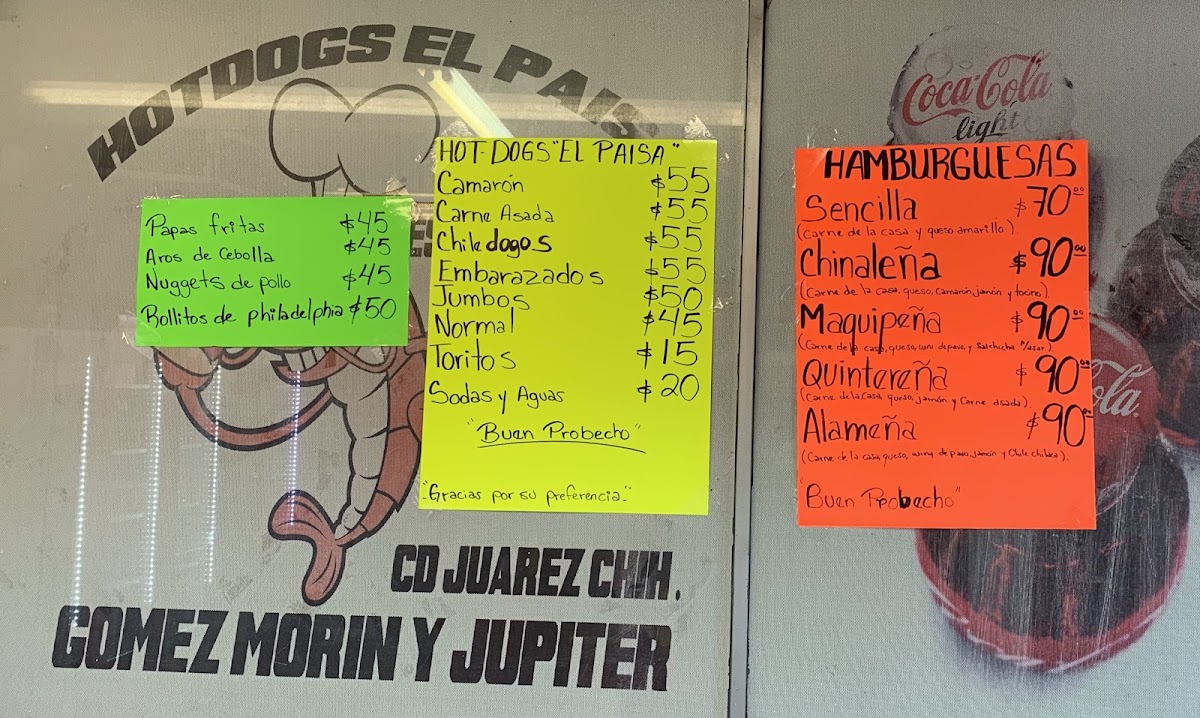 HOTDOGS EL PAISA
Papas fritas $45
Aros de Cebolla $45
Nuggets de pollo $45
Rollitos de philadelphia $50
HOT-DOGS "EL PAISA"
Camarón $55
Carne Asada $55
Chile dogos $55
Embarazados $55
Jumbos $50
Normal $45
Toritos $15
Sodas y Aguas $20
"Buen Probecho"
"Gracias por su preferencia"
CD JUAREZ CHIH.
GOMEZ MORIN Y JUPITER
Coca-Cola
light
HAMBURGUESAS
Sencilla $70.00
(Carne de la casa y queso amarillo).
Chinaleña $90.00
(Carne de la casa, queso, camarón, jamón y tocino).
Maquipeña $90.00
(Carne de la casa, queso, y Salchicha P/asar).
Quintereña $90.00
(Carne de la Casa, queso, jamón y Carne asada).
Alameña $90.00
(Carne de la casa, queso, de pavo, jamón y Chile chilaca).
"Buen Probecho"
Cola